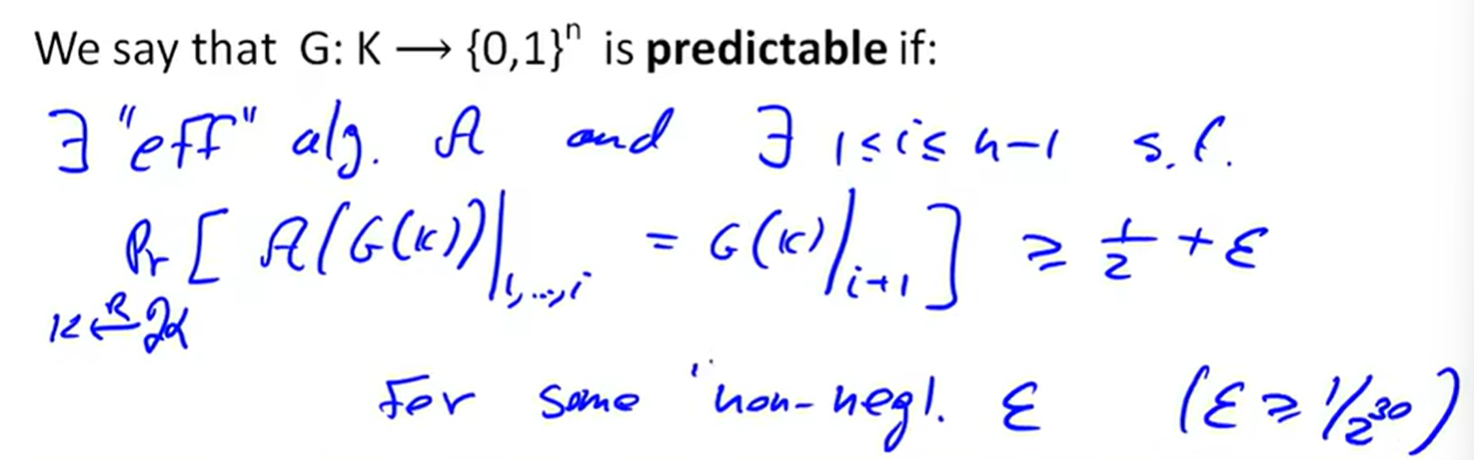 We say that G: K ⟶ {0,1}ⁿ is predictable if:
∃ "eff" alg. A and ∃ 1≤i≤n-1 s.t.
Pr [ A(G(k))|₁,...,ᵢ = G(k)|ᵢ₊₁ ] ≥ 1/2 + ε
k ←ᴿ K
For some "non-negl. ε (ε ≥ 1/2³⁰)